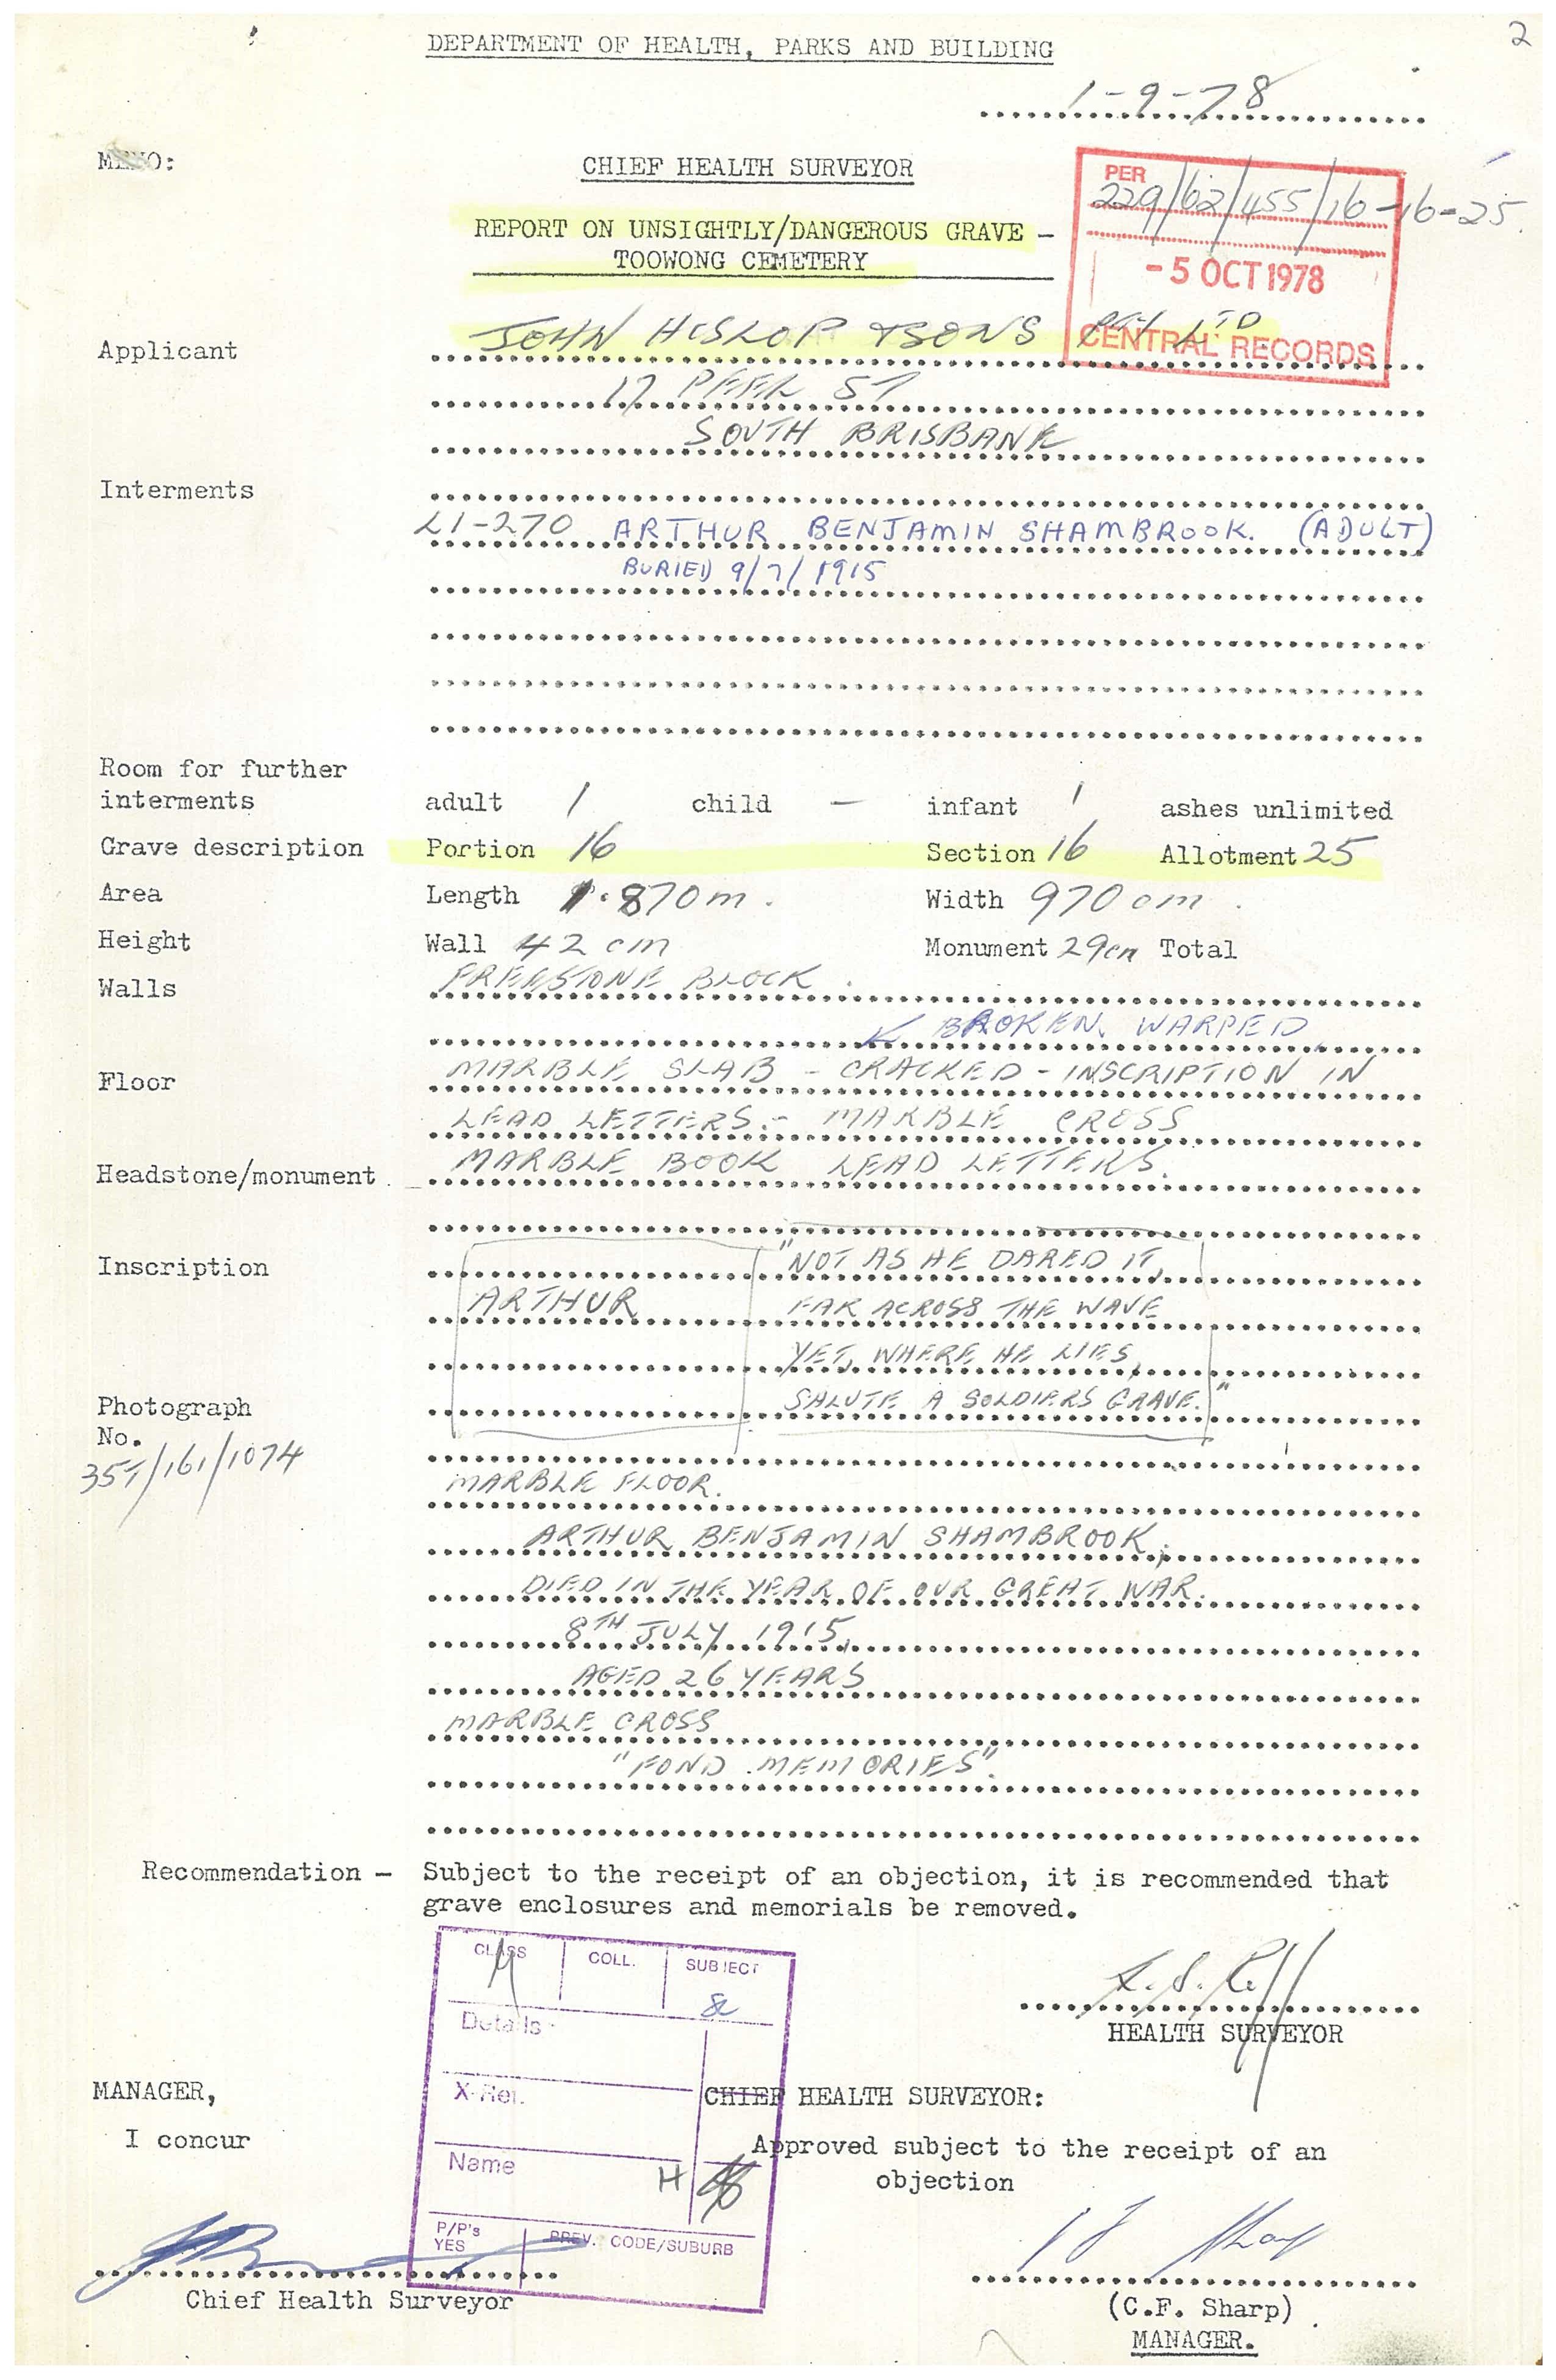 2
DEPARTMENT OF HEALTH, PARKS AND BUILDING
1-9-78
MEMO:
CHIEF HEALTH SURVEYOR
PER
229/62/455/16-16-25.
REPORT ON UNSIGHTLY/DANGEROUS GRAVE -
TOOWONG CEMETERY
- 5 OCT 1978
CENTRAL RECORDS
Applicant JOHN HISLOP & SONS PTY LTD
17 PEEL ST
SOUTH BRISBANE
Interments
L1-270 ARTHUR BENJAMIN SHAMBROOK. (ADULT)
BURIED 9/7/1915
Room for further
interments adult 1 child - infant 1 ashes unlimited
Grave description Portion 16 Section 16 Allotment 25
Area Length 1.870m. Width 970cm.
Height Wall 42 cm Monument 29cm Total
Walls FREESTONE BLOCK.
BROKEN. WARPED
Floor MARBLE SLAB - CRACKED - INSCRIPTION IN
LEAD LETTERS. - MARBLE CROSS
Headstone/monument MARBLE BOOK LEAD LETTERS.
Inscription "NOT AS HE DARED IT,
ARTHUR FAR ACROSS THE WAVE
YET, WHERE HE LIES,
SALUTE A SOLDIERS GRAVE."
Photograph
No.
35T/161/1074
MARBLE FLOOR.
ARTHUR BENJAMIN SHAMBROOK,
DIED IN THE YEAR OF OUR GREAT WAR.
8TH JULY 1915,
AGED 26 YEARS
MARBLE CROSS
"FOND MEMORIES".
Recommendation - Subject to the receipt of an objection, it is recommended that
grave enclosures and memorials be removed.
CLASS COLL. SUBJECT
Details
HEALTH SURVEYOR
X-Ref.
MANAGER,
CHIEF HEALTH SURVEYOR:
I concur
Approved subject to the receipt of an
objection
Name H
P/P's
YES
PREV. CODE/SUBURB
Chief Health Surveyor
(C.F. Sharp)
MANAGER.